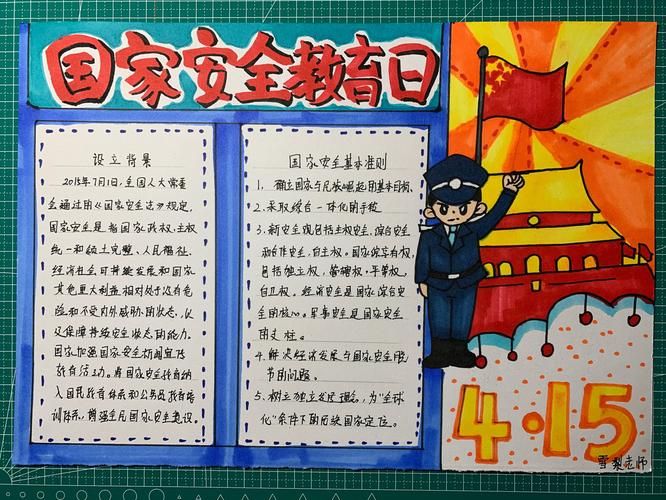 国家安全教育日
设立背景
2015年7月1日,全国人大常委
会通过的《国家安全法》规定,
国家安全是指国家政权、主权
统一和领土完整、人民福祉、
经济社会可持续发展和国家
其他重大利益相对处于没有危
险和不受内外威胁的状态,以
及保障持续安全状态的能力。
国家加强国家安全新闻宣传
教育活动。将国家安全教育纳
入国民教育体系和公务员教育培
训体系,增强全民国家安全意识。
国家安全基本准则
1、确立国家与民族崛起的基本目标、
2、采取综合一体化的手段
3、新安全观包括主权安全,综合安全
和合作安全,自主权。国家体享有权,
包括独立权,管辖权,平等权,
自卫权。经济安全是国家综合安
全的核心。军事安全是国家安全
的支柱。
4、解决经济发展与国家安全脱
节的问题。
5、树立独立发展理念,为"全球
化"条件下的历史国家定位。
4·15
雪梨老师